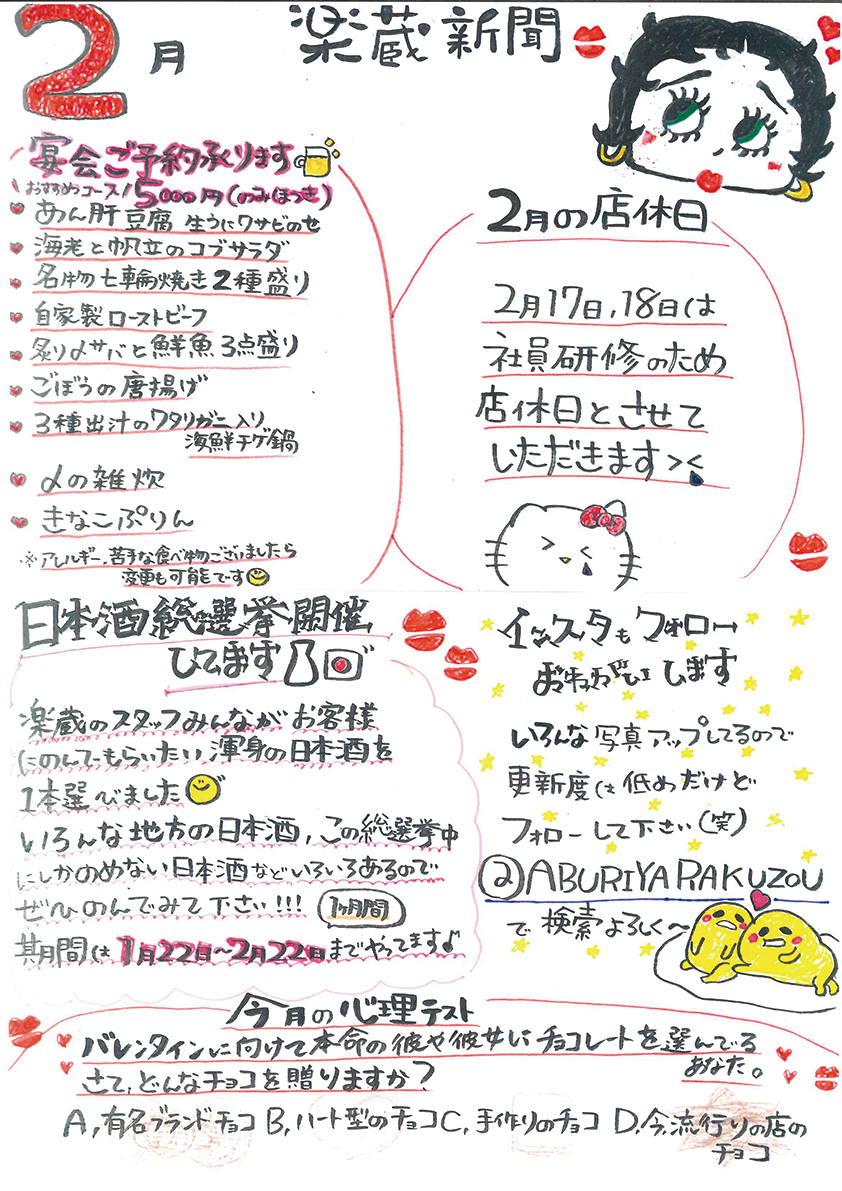 2月
楽蔵新聞
宴会ご予約承ります
おすすめコース!5000円(のみほつき)
あん肝豆腐 生うにワサビのせ
海老と帆立のコブサラダ
名物七輪焼き2種盛り
自家製ローストビーフ
炙り〆サバと鮮魚3点盛り
ごぼうの唐揚げ
3種出汁のワタリガニ入り
海鮮チゲ鍋
〆の雑炊
きなこぷりん
※アレルギー、苦手な食べ物ございましたら
変更も可能です
2月の店休日
2月17日,18日は
社員研修のため
店休日とさせて
いただきます><
日本酒総選挙開催
してます
楽蔵のスタッフみんながお客様
にのんでもらいたい渾身の日本酒を
1本選びました
いろんな地方の日本酒,この総選挙中
にしかのめない日本酒などいろいろあるので
ぜひのんでみて下さい!!!
1ヶ月間
其月間は1月22日~2月22日までやってます♪
インスタもフォロー
おねがいします
いろんな写真アップしてるので
更新度は低めだけど
フォローして下さい(笑)
@ABURIYARAKUZOU
で検索よろしく~
今月の心理テスト
バレンタインに向けて本命の彼や彼女にチョコレートを選んでる
あなた。
さて,どんなチョコを贈りますか?
A,有名ブランドチョコ B,ハート型のチョコ C,手作りのチョコ D,今流行りの店の
チョコ